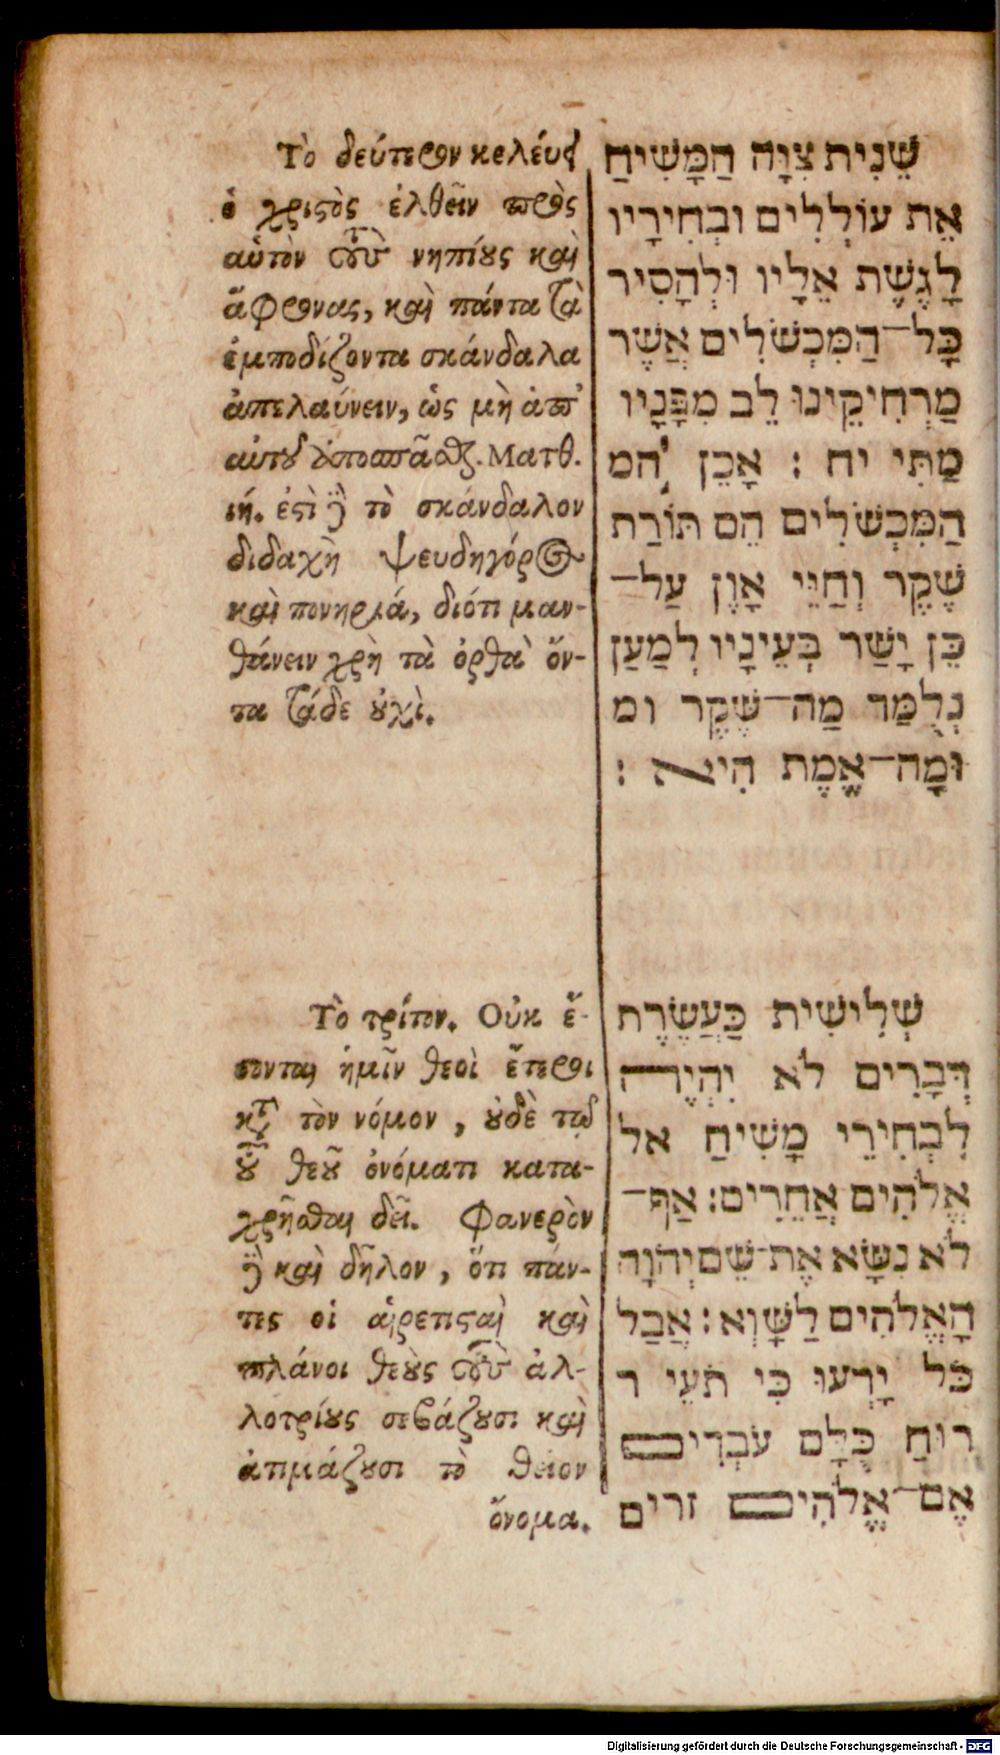 Τὸ δεύτερον κελέυει
ὁ χριςὸς ἐλθεῖν πρὸς
αὑτὸν τοὺς νηπίους καὶ
ἄφρονας, καὶ πάντα τὰ
ἐμποδίζοντα σκάνδαλα
ἀπελαύνειν, ὡς μὴ ἀπ'
αὐτοῦ ὑποσπᾶσθαι. Ματθ.
ιή. ἐςὶ δὲ τὸ σκάνδαλον
διδαχὴ ψευδηγόρος
καὶ πονηρία, διότι μαν-
θάνειν χρὴ τὰ ὀρθὰ ὄν-
τα τάδε οὐχὶ.
Τὸ τρίτον. Οὐκ ἔ-
σονται ἡμῖν θεοὶ ἕτεροι
κατὰ τὸν νόμον, οὐδὲ τῷ
τοῦ θεοῦ ὀνόματι κατα-
χρῆσθαι δεῖ. Φανερὸν
δὲ καὶ δῆλον, ὅτι πάν-
τες οἱ αἱρετιςαὶ καὶ
πλάνοι θεοὺς τοὺς ἀλ-
λοτρίους σεβάζουσι καὶ
ἀτιμάζουσι τὸ θεῖον
ὄνομα.
שֵׁנִית צִוָּה הַמָּשִׁיחַ
אֵת עוֹלְלִים וּבְחִירָיו
לָגֶשֶׁת אֵלָיו וּלְהָסִיר
כָּל־הַמִּכְשֹׁלִים אֲשֶׁר
מַרְחִיקֵינוּ לֵב מִפָּנָיו
מַתִּי יח : אָכֵן המ
הַמִּכְשֹׁלִים הֵם תּוֹרַת
שֶׁקֶר וְחַיֵּי אָוֶן עַל־
כֵּן יָשַׁר בְּעֵינָיו לְמַעַן
נְלֻמַּד מַה־שֶׁקֶר ומ
וּמָה־אֱמֶת הִיא :
שְׁלִישִׁית כַּעֲשֶׂרֶת
דְּבָרִים לֹא יִהְיֶה
לִבְחִירֵי מָשִׁיחַ אל
אֱלֹהִים אֲחֵרִים: אַף־
לֹא נִשָּׂא אֶת־שֵׁם יְהֹוָה
הָאֱלֹהִים לַשָּׁוְא : אֲבַל
כֹּל יָרְעוּ כִּי תֹעֵי ר
רוּחַ כֻּלָּם עֹבְדִים
אֶם־אֱלֹהִים זרים
Digitalisierung gefördert durch die Deutsche Forschungsgemeinschaft - DFG